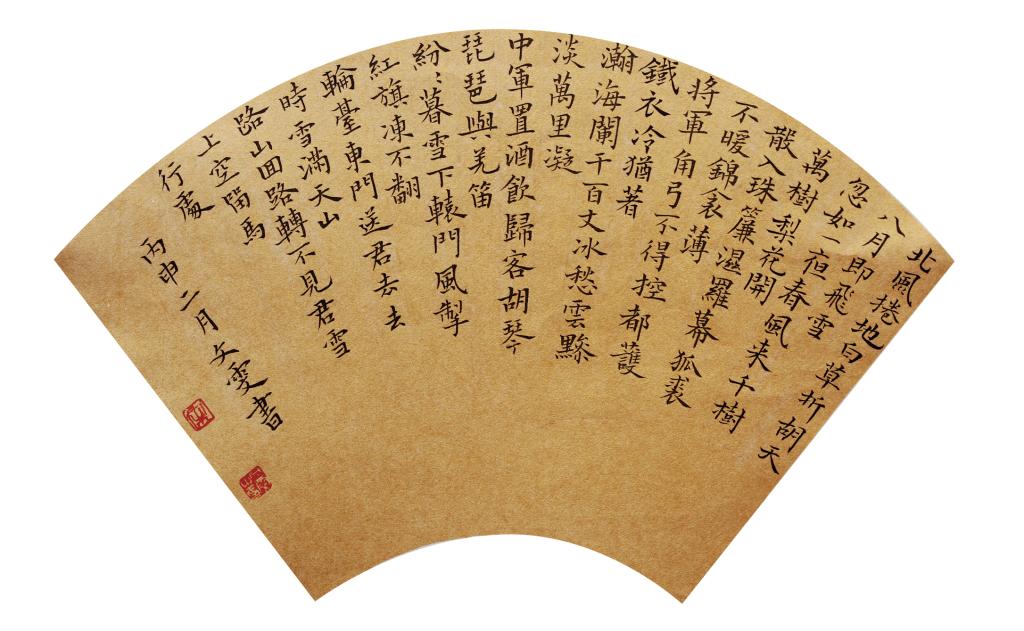 北風捲地白草折胡天
八月即飛雪
忽如一夜春風来千樹
萬樹梨花開
散入珠簾濕羅幕狐裘
不暖錦衾薄
將軍角弓不得控都護
鐵衣冷猶著
瀚海闌干百丈冰愁雲黲
淡萬里凝
中軍置酒飲歸客胡琴
琵琶與羌笛
紛〻暮雪下轅門風掣
紅旗凍不翻
輪臺東門送君去去
時雪滿天山
路山回路轉不見君雪
上空留馬
行處
丙申二月文雯書